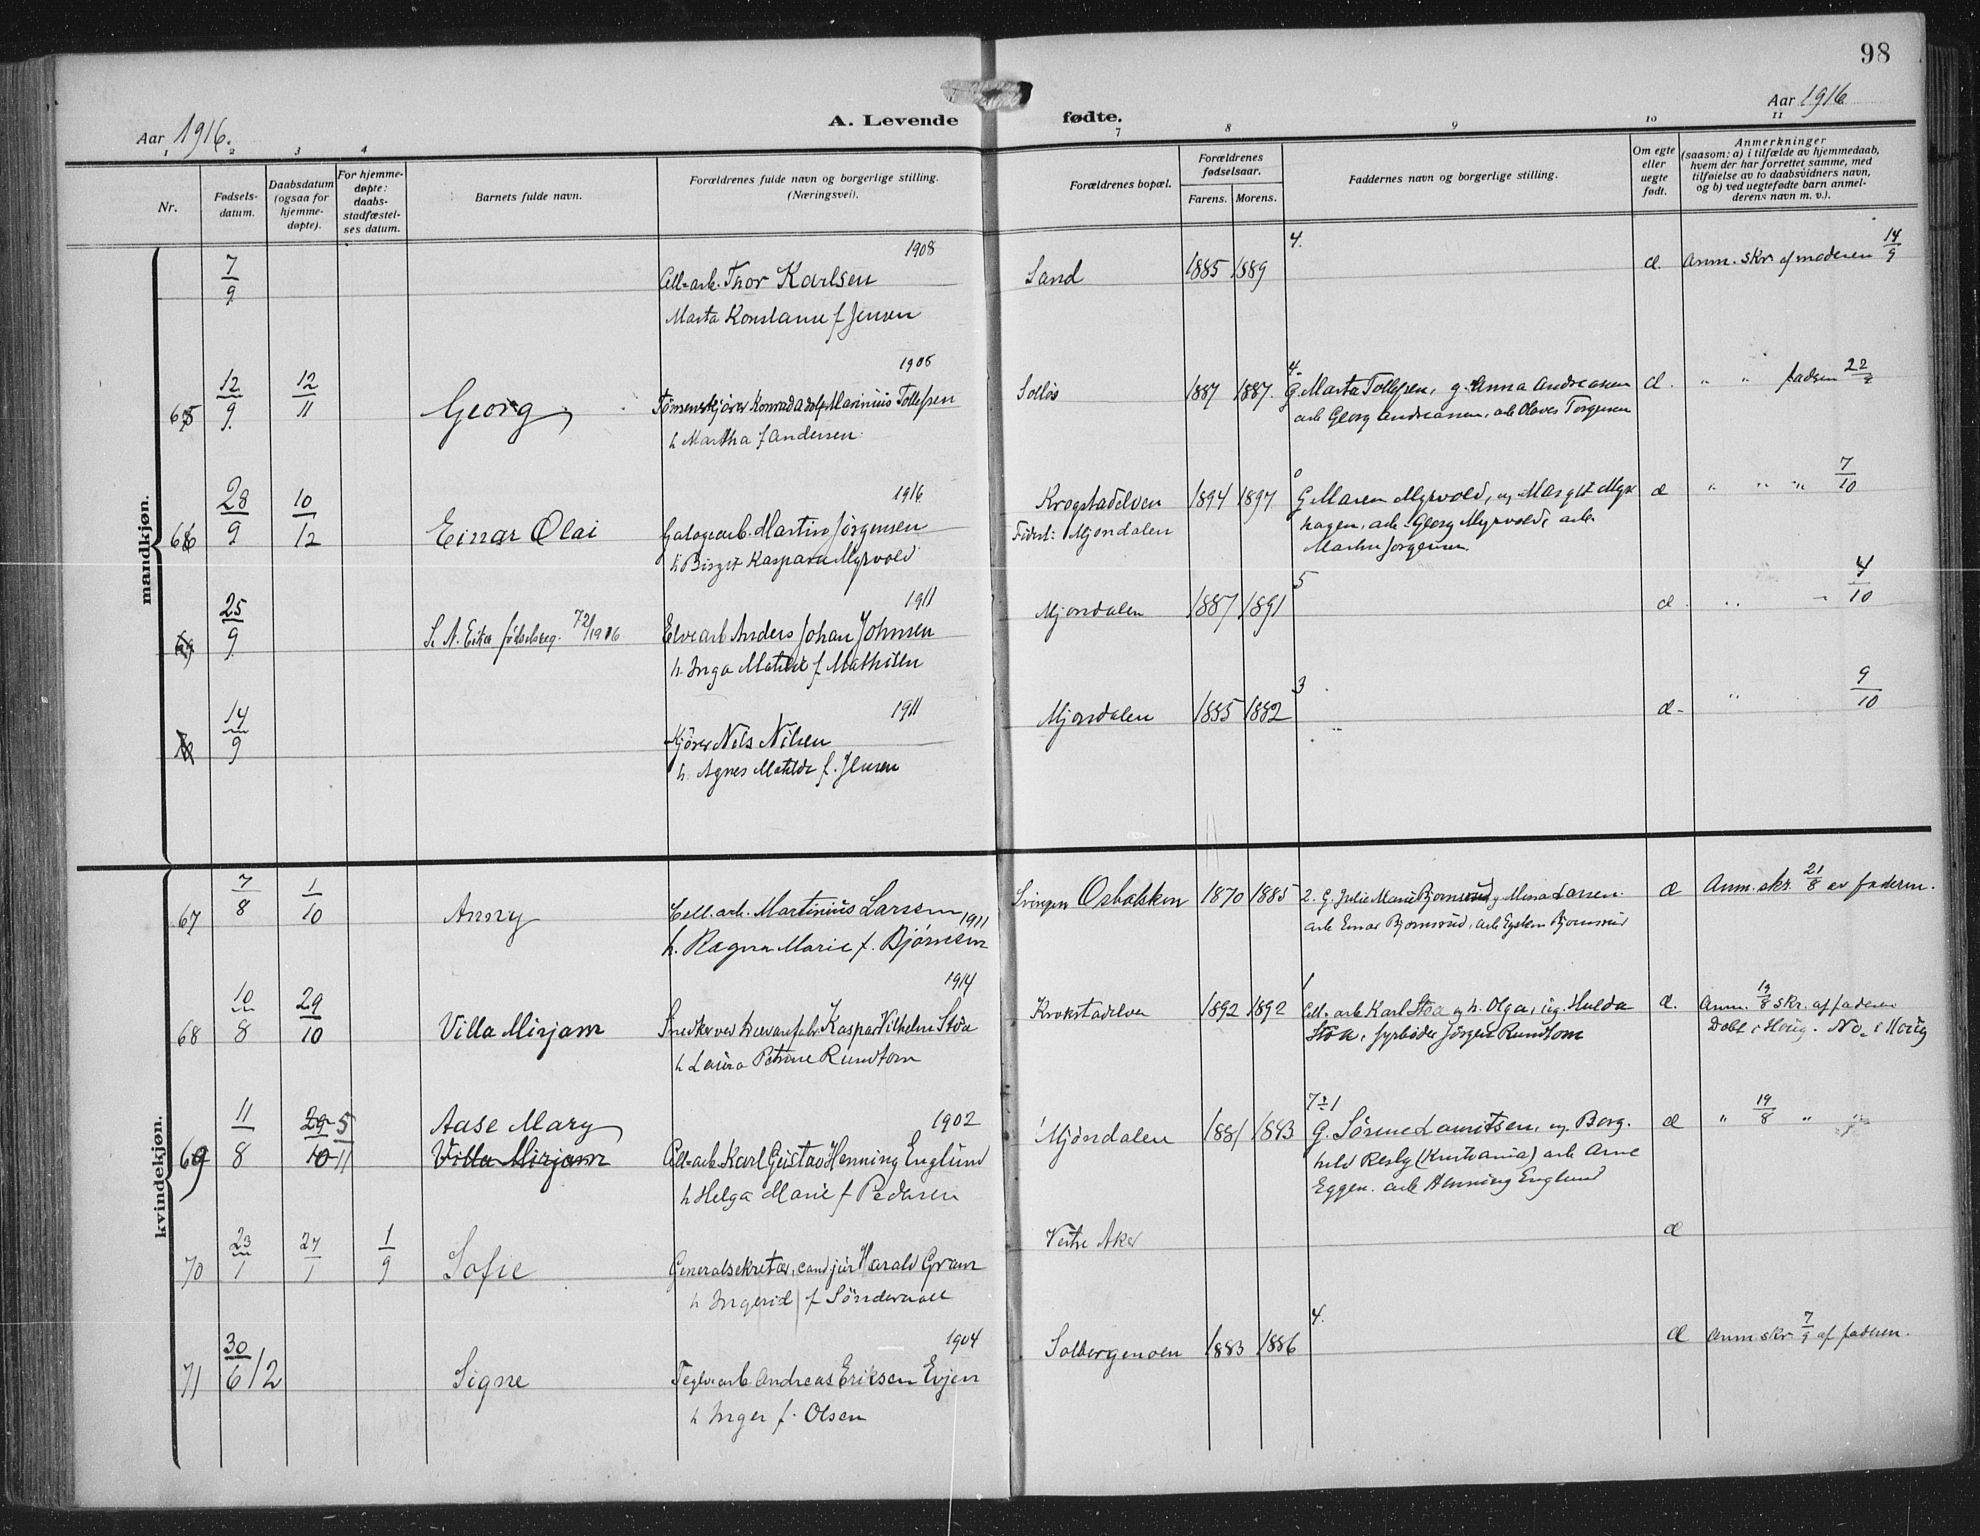 98
Aar 1916.
A. Levende fødte.
Aar 1916
1 2 3 4 7 8 9 10 11
Nr.
Fødsels-
datum.
Daabsdatum
(ogsaa for
hjemme-
døpte).
For hjemme-
døpte:
daabs-
stadfæstel-
ses datum.
Barnets fulde navn.
Forældrenes fulde navn og borgerlige stilling.
(Næringsvei).
Forældrenes bopæl.
Forældrenes
fødselsaar.
Farens. Morens.
Faddernes navn og borgerlige stilling.
Om egte
eller
uegte
født.
Anmerkninger
(saasom: a) i tilfælde av hjemmedaab,
hvem der har forrettet samme, med
tilføielse av to daabsvidners navn,
og b) ved uegtefødte barn anmel-
derens navn m. v.).
mandkjøn.
7/9 1908
Cell-arb. Thor Karlsen
Marta Konstanse f Jensen
Sand 1885 1889 4. æ. Anm. skr. af moderen 14/9
65 12/9 12/11 Georg
Tömmerkjörer Konrad Adolf Marinius Tollefsen
h Martha f Andersen
1887 1887. 4.
G Marta Tollefsen, g. Anna Andreasen
arb Georg Andreassen, arb Olaves Torgersen
æ. " " fadren
66 28/9 10/12 Einar Olai
1916
Galogearb. Martin Jörgensen
h Birgit Kaspara Myrvold
Krogstadelven
Fiderl: Mjöndalen
1894 1897 0
G Maren Myrvold, og Margit Myr
hagen, arb. Georg Myrvold, arb.
Martin Jörgensen.
æ " " " 7/10
25/9 S. N. Eiker fødselsreg. 72/1916
1911
Elvearb Anders Johan Johnsen
h. Inga Matilde f Mathisen
Mjöndalen 1887 1891 5 æ " " 4/10
14/9 1911
Kjörer Nils Nilsen
h. Agnes Matilde f. Jensen
Mjöndalen 1885 1882 3 æ " 9/10
kvindekjøn.
67 7/8 1/10 Anny
Cell. arb. Martinius Larsen 1911
h. Ragna Marie f. Bjørnsen
Svingen 1870 1885
2. G. Julie Marie Bjørnsrud g Mina Larsen.
arb Einar Bjørnsrud, arb Eystein Bjørnsrud
æ Anm. skr. 21/8 av faderen.
68 10/8 29/10 Villa Mirjam
1914
Snedker ved trævarefabr. Kaspar Vilhelm Stoa
h Laura Petrine Rundtom
Krokstadelven 1892 1892 1
Cell-arb Karl Stoa og h. Olga, ug. Hulda
Stoa, fyrböder Jörgen Rundtom
æ. Anm. 19/8 skr. af faderen
Døbt i Houg. No 2 i Houg
69 11/8 29/10 5/11 Aase Mary
Villa Mirjam
1902
Cell-arb. Karl Gustav Henning Englund
h Helga Marie f Pedersen
Mjöndalen 1881 1883
G. Sörine Lauritsen, ug. Borg-
hild Resby (Kristiania) arb Arne
Eggen. arb Henning Englund
æ " 19/8 " "
70 23/1 27/1 1/9 Sofie
Generalsekretær, cand jur Harald Gram
h Ingerid f Sönderaal
Vestre Aker æ
71 30/6 12 Signe
1904
Teglv.arb Andreas Eriksen Evjen
h Inger f. Olsen
Solbergmoen 1883 1886 4. æ Anm skr. 7/9 af faderen.